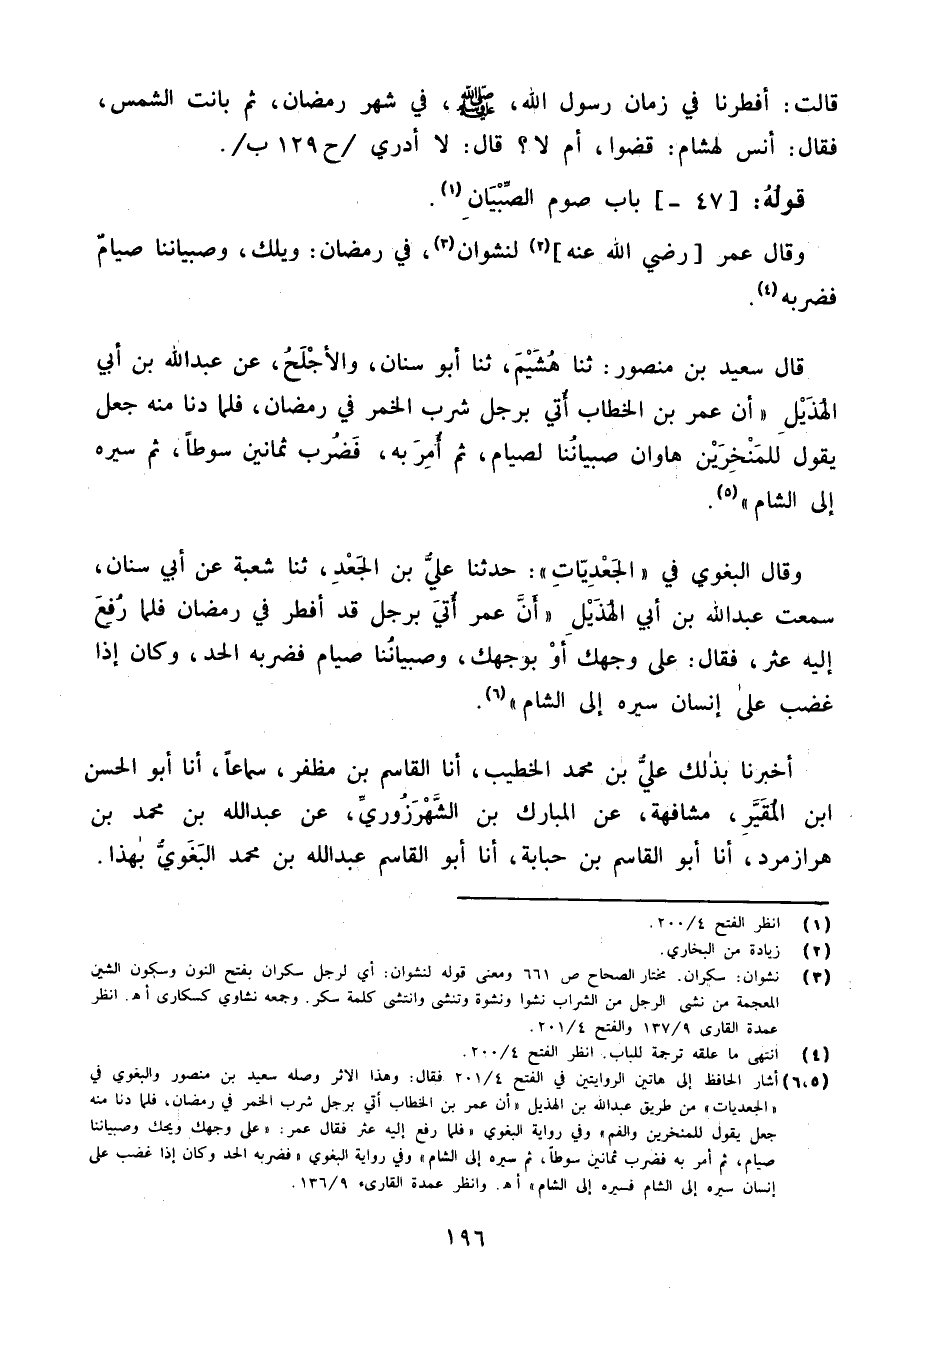 قالت: أفطرنا في زمان رسول الله، ﷺ، في شهر رمضان، ثم بانت الشمس،
فقال: أنس لهشام: قضوا، أم لا؟ قال: لا أدري /ح ١٢٩ ب/.
قولُهُ: [٤٧ ـ] باب صوم الصِّبْيَانِ(١).
وقال عمر [رضي الله عنه](٢) لنشوان(٣)، في رمضان: ويلك، وصبياننا صيامٌ
فضربه(٤).
قال سعيد بن منصور: ثنا هُشَيْمَ، ثنا أبو سنان، والأجْلَحُ، عن عبدالله بن أبي
الهُذَيْلِ «أن عمر بن الخطاب أُتي برجل شرب الخمر في رمضان، فلما دنا منه جعل
يقول للمَنْخِرَيْنِ هاوان صبيانُنا لصيام، ثم أُمِرَ به، فَضُرب ثمانين سوطاً، ثم سيره
إلى الشام»(٥).
وقال البغوي في «الجَعْدِيّاتِ»: حدثنا عليُّ بن الجَعْدِ، ثنا شعبة عن أبي سنان،
سمعت عبدالله بن أبي الهُذَيْلِ «أَنَّ عمر أُتيَ برجل قد أفطر في رمضان فلما رُفِعَ
إليه عثر، فقال: على وجهك أوْ بوجهك، وصبيانُنا صيام فضربه الحد، وكان إذا
غضب علىٰ إنسان سيره إلى الشام»(٦).
أخبرنا بذٰلك عليُّ بن محمد الخطيب، أنا القاسم بن مظفر، سماعاً، أنا أبو الحسن
ابن المُقَيَّرِ، مشافهة، عن المبارك بن الشَّهْرَزُوريِّ، عن عبدالله بن محمد بن
هرازمرد، أنا أبو القاسم بن حبابة، أنا أبو القاسم عبدالله بن محمد البَغَويُّ بهٰذا.
(١) انظر الفتح ٢٠٠/٤.
(٢) زيادة من البخاري.
(٣) نشوان: سكران. مختار الصحاح ص ٦٦١ ومعنى قوله لنشوان: أي لرجل سكران بفتح النون وسكون الشين
المعجمة من نشى الرجل من الشراب نشوا ونشوة وتنشى وانتشى كلمة سكر. وجمعه نشاوي كسكارى أ هـ. انظر
عمدة القارى ١٣٧/٩ والفتح ٢٠١/٤.
(٤) انتهى ما علقه ترجمة للباب. انظر الفتح ٢٠٠/٤.
(٦،٥) أشار الحافظ إلى هاتين الروايتين في الفتح ٢٠١/٤ فقال: وهذا الاثر وصله سعيد بن منصور والبغوي في
«الجعديات» من طريق عبدالله بن الهذيل «أن عمر بن الخطاب أتي برجل شرب الخمر في رمضان، فلما دنا منه
جعل يقول للمنخرين والفم» وفي رواية البغوي «فلما رفع إليه عثر فقال عمر: «على وجهك ويحك وصبياننا
صيام، ثم أمر به فضرب ثمانين سوطاً، ثم سيره إلى الشام» وفي رواية البغوي «فضربه الحد وكان إذا غضب على
إنسان سيره إلى الشام فسيره إلى الشام» أ هـ. وانظر عمدة القارىء ١٣٦/٩.
١٩٦